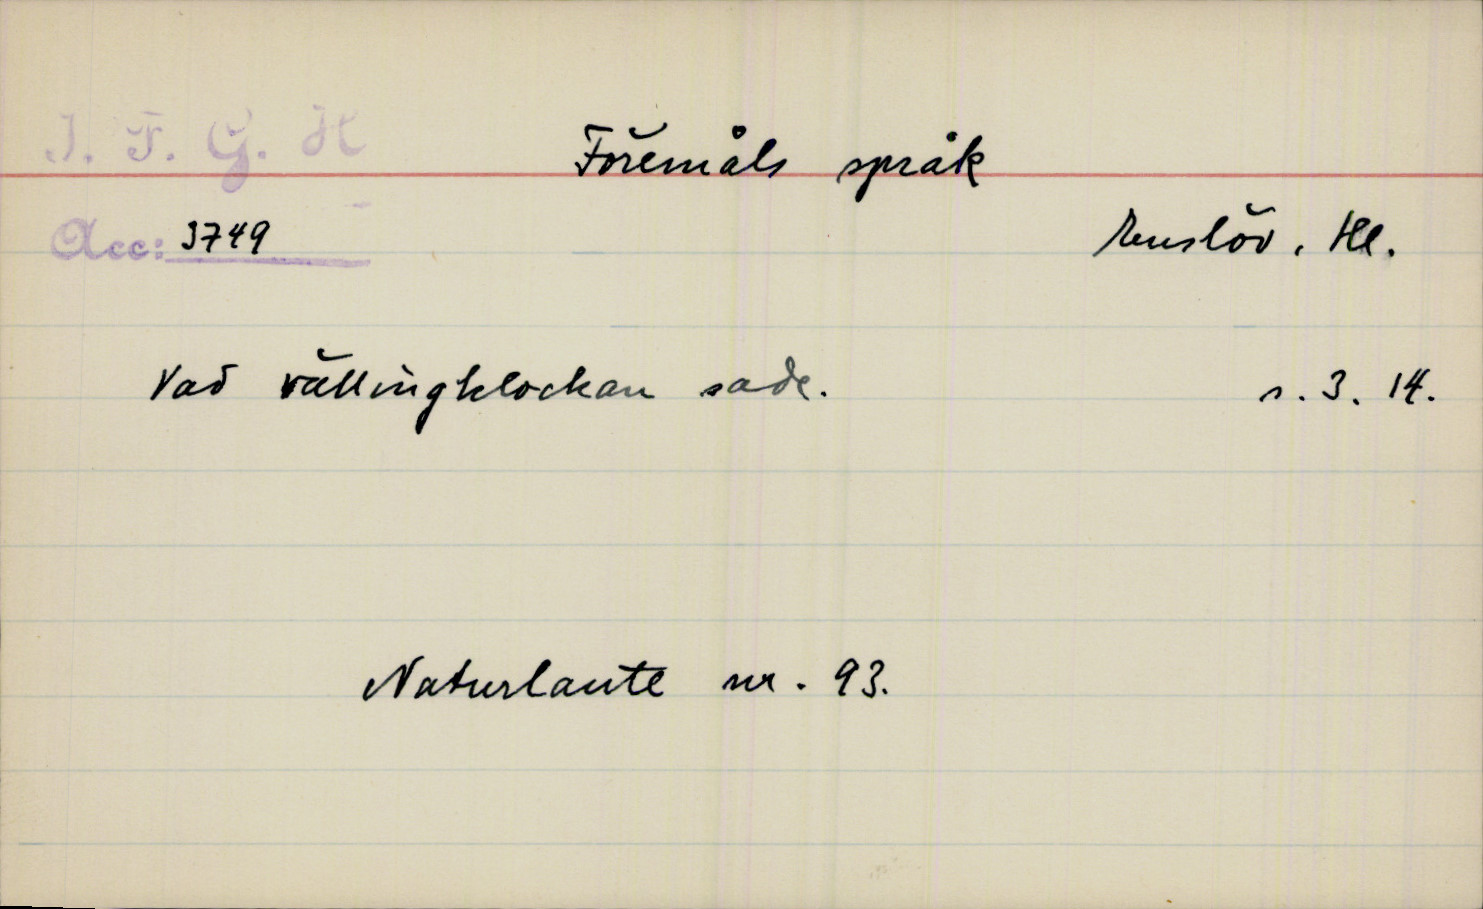 I. F. G. H
Föremåls språk
Acc: 3749
Renslöv, Hl.
Vad vällingklockan sade. s. 3. 14.
Naturlaute nr. 93.